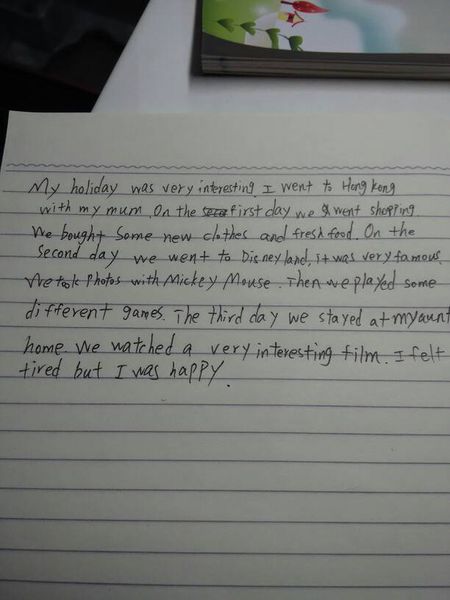 My holiday was very interesting. I went to Hong kong
with my mum. On the first day we went shopping.
We bought some new clothes and fresh food. On the
second day we went to Disneyland, it was very famous.
We took photos with Mickey Mouse. Then we played some
different games. The third day we stayed at my aunt
home. We watched a very interesting film. I felt
tired but I was happy.